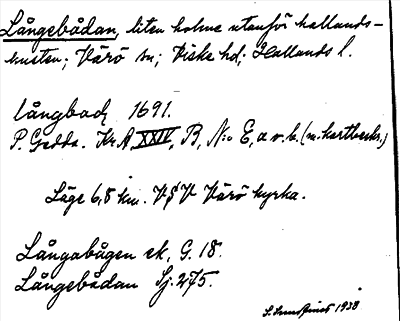 Långebådan, liten holme utanför hallands-
kusten; Värö sn; Viske hd; Hallands l.
långbad 1691.
P. Gedda. Kr. A, XXIV, B, N:o E, a o. b. (m. kartbeskr.)
Läge 6,8 km. VSV Värö kyrka.
Långabågen ek, G. 18.
Långebådan Sj. 275.
1938